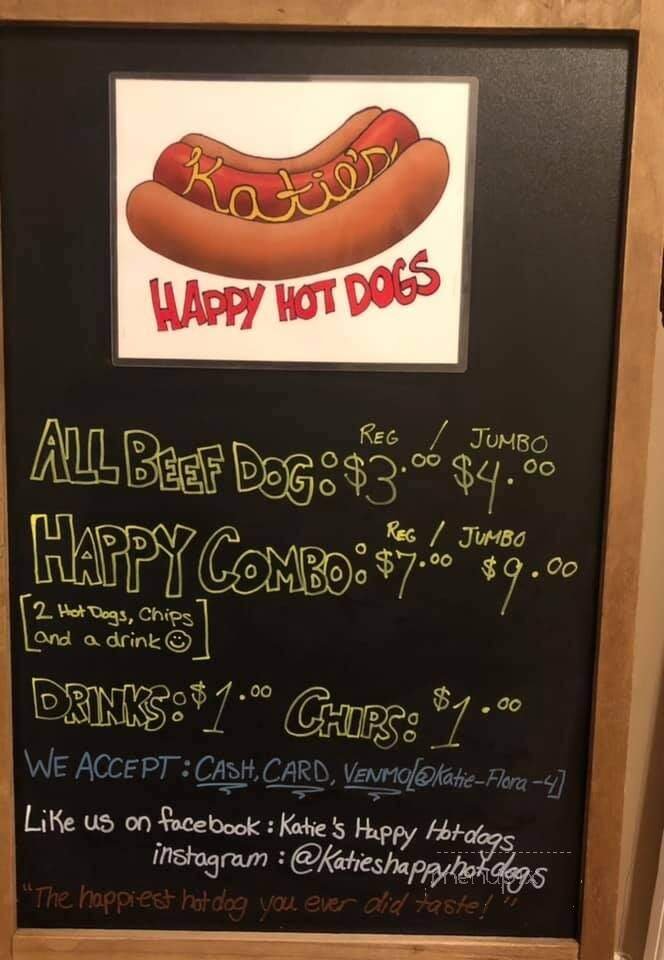 Katie's
HAPPY HOT DOGS
REG / JUMBO
ALL BEEF DOG: $3.00 $4.00
REG / JUMBO
HAPPY COMBO: $7.00 $9.00
[2 Hot Dogs, Chips
and a drink ☺]
DRINKS: $1.00 CHIPS: $1.00
WE ACCEPT: CASH, CARD, VENMO[@Katie-Flora-4]
Like us on facebook: Katie's Happy Hotdogs
instagram: @Katieshappyhotdogs
menupix
"The happiest hotdog you ever did taste!"